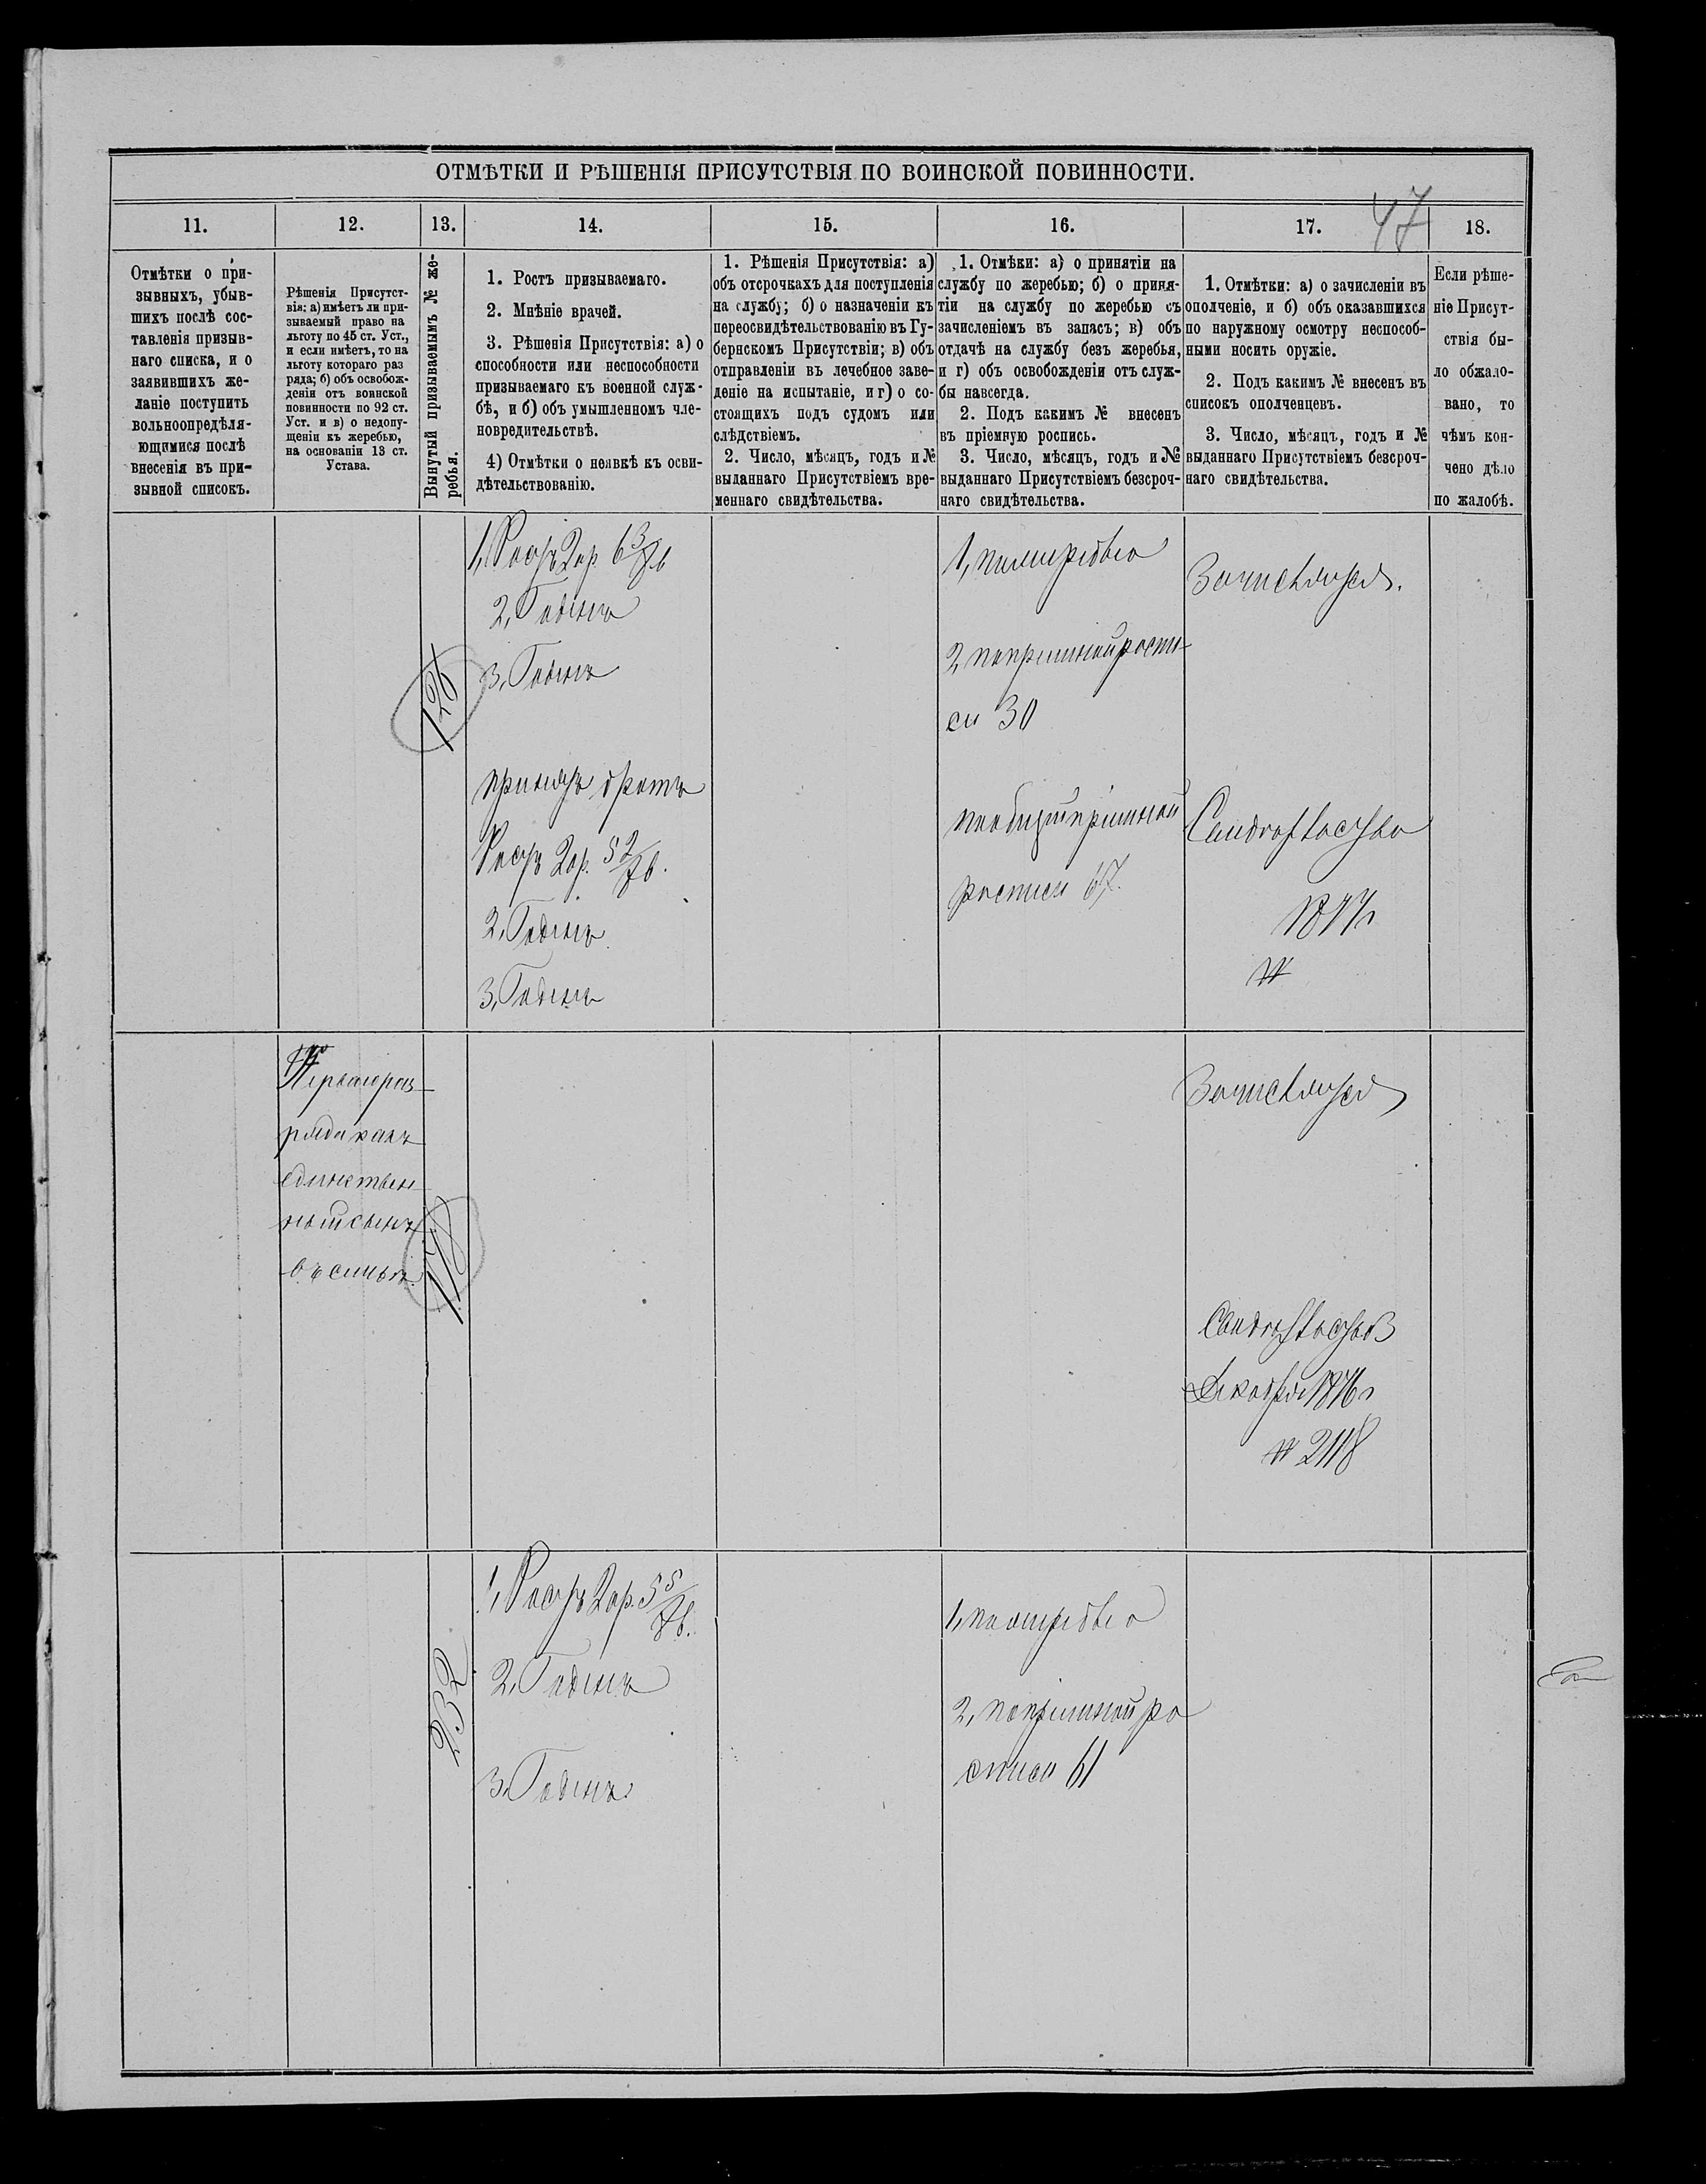 ОТМѢТКИ И РѢШЕНІЯ ПРИСУТСТВІЯ ПО ВОИНСКОЙ ПОВИННОСТИ.
47
11.
12.
13.
14.
15.
16.
17.
18.
Отмѣтки о при-
зывныхъ, убыв-
шихъ послѣ сос-
тавленія призыв-
наго списка, и о
заявившихъ же-
ланіе поступить
вольноопредѣля-
ющимися послѣ
внесенія въ при-
зывной списокъ.
Рѣшенія Присутст-
вія: а) имѣетъ ли при-
зываемый право на
льготу по 45 ст. Уст.,
и если имѣетъ, то на
льготу котораго раз
ряда; б) объ освобож-
деніи отъ воинской
повинности по 92 ст.
Уст. и в) о недопу-
щеніи къ жеребью,
на основаніи 13 ст.
Устава.
Вынутый призываемымъ № же-
ребья.
1. Ростъ призываемаго.
2. Мнѣніе врачей.
3. Рѣшенія Присутствія: а) о
способности или неспособности
призываемаго къ военной служ-
бѣ, и б) объ умышленномъ чле-
новредительствѣ.
4) Отмѣтки о неявкѣ къ осви-
дѣтельствованію.
1. Рѣшенія Присутствія: а)
объ отсрочкахъ для поступленія
на службу; б) о назначеніи къ
переосвидѣтельствованію въ Гу-
бернскомъ Присутствіи; в) объ
отправленіи въ лечебное заве-
деніе на испытаніе, и г) о со-
стоящихъ подъ судомъ или
слѣдствіемъ.
2. Число, мѣсяцъ, годъ и №
выданнаго Присутствіемъ вре-
меннаго свидѣтельства.
1. Отмѣки: а) о принятіи на
службу по жеребью; б) о приня-
тіи на службу по жеребью съ
зачисленіемъ въ запасъ; в) объ
отдачѣ на службу безъ жеребья,
и г) объ освобожденіи отъ служ-
бы навсегда.
2. Подъ какимъ № внесенъ
въ пріемную роспись.
3. Число, мѣсяцъ, годъ и №
выданнаго Присутствіемъ безсроч-
наго свидѣтельства.
1. Отмѣтки: а) о зачисленіи въ
ополченіе, и б) объ оказавшихся
по наружному осмотру неспособ-
ными носить оружіе.
2. Подъ какимъ № внесенъ въ
списокъ ополченцевъ.
3. Число, мѣсяцъ, годъ и №
выданнаго Присутствіемъ безсроч-
наго свидѣтельства.
Если рѣше-
ніе Присут-
ствія бы-
ло обжало-
вано, то
чѣмъ кон-
чено дѣло
по жалобѣ.
1, Ростъ 2 ар. 6 3/8 в
2, Годенъ
3, Годенъ
принятъ братъ
Ростъ 2 ар. 5 2/8 в.
2, Годенъ
3, Годенъ
2 по пріемной роспи-
си 30
пріемной
росписи 67.
Зачисляется.
№
Перваго раз-
ряда какъ
единствен-
ный сынъ
въ семьѣ.
Зачисляется
Декабря 1876 г
№ 2118
232
1, Ростъ 2 ар. 5 5/8 в.
2, Годенъ
3, Годенъ
2, по пріемной ро
списи 61